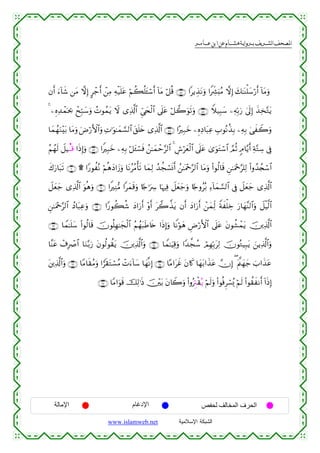 المصحف الشريف برواية هشام عن ابن عامر
وَمَآ أَرْسَلْنَٰكَ إِلَّا مُبَشِّرٗا وَنَذِيرٗا ۝ قُلْ مَآ أَسْـَٔلُكُمْ عَلَيْهِ مِنْ أَجْرٍ إِلَّا مَن شَآءَ أَن
يَتَّخِذَ إِلَىٰ رَبِّهِۦ سَبِيلٗا ۝ وَتَوَكَّلْ عَلَى ٱلْحَيِّ ٱلَّذِي لَا يَمُوتُ وَسَبِّحْ بِحَمْدِهِۦۚ
وَكَفَىٰ بِهِۦ بِذُنُوبِ عِبَادِهِۦ خَبِيرًا ۝ ٱلَّذِي خَلَقَ ٱلسَّمَٰوَٰتِ وَٱلْأَرْضَ وَمَا بَيْنَهُمَا
فِي سِتَّةِ أَيَّامٖ ثُمَّ ٱسْتَوَىٰ عَلَى ٱلْعَرْشِۚ ٱلرَّحْمَٰنُ فَسْـَٔلْ بِهِۦ خَبِيرٗا ۝ وَإِذَا قِيلَ لَهُمُ
ٱسْجُدُوا لِلرَّحْمَٰنِ قَالُوا وَمَا ٱلرَّحْمَٰنُ أَنَسْجُدُ لِمَا تَأْمُرُنَا وَزَادَهُمْ نُفُورٗا ۩ ۝ تَبَارَكَ
ٱلَّذِي جَعَلَ فِي ٱلسَّمَآءِ بُرُوجٗا وَجَعَلَ فِيهَا سِرَٰجٗا وَقَمَرٗا مُنِيرٗا ۝ وَهُوَ ٱلَّذِي جَعَلَ
ٱلَّيْلَ وَٱلنَّهَارَ خِلْفَةٗ لِمَنْ أَرَادَ أَن يَذَّكَّرَ أَوْ أَرَادَ شُكُورٗا ۝ وَعِبَادُ ٱلرَّحْمَٰنِ
ٱلَّذِينَ يَمْشُونَ عَلَى ٱلْأَرْضِ هَوْنٗا وَإِذَا خَاطَبَهُمُ ٱلْجَٰهِلُونَ قَالُوا سَلَٰمٗا ۝
وَٱلَّذِينَ يَبِيتُونَ لِرَبِّهِمْ سُجَّدٗا وَقِيَٰمٗا ۝ وَٱلَّذِينَ يَقُولُونَ رَبَّنَا ٱصْرِفْ عَنَّا
عَذَابَ جَهَنَّمَۖ إِنَّ عَذَابَهَا كَانَ غَرَامًا ۝ إِنَّهَا سَآءَتْ مُسْتَقَرّٗا وَمُقَامٗا ۝ وَٱلَّذِينَ
إِذَآ أَنفَقُوا لَمْ يُسْرِفُوا وَلَمْ يُقْتِرُوا وَكَانَ بَيْنَ ذَٰلِكَ قَوَامٗا ۝
الحرف المخالف لحفص الإدغام الإمالة
الشبكة الإسلامية www.islamweb.net